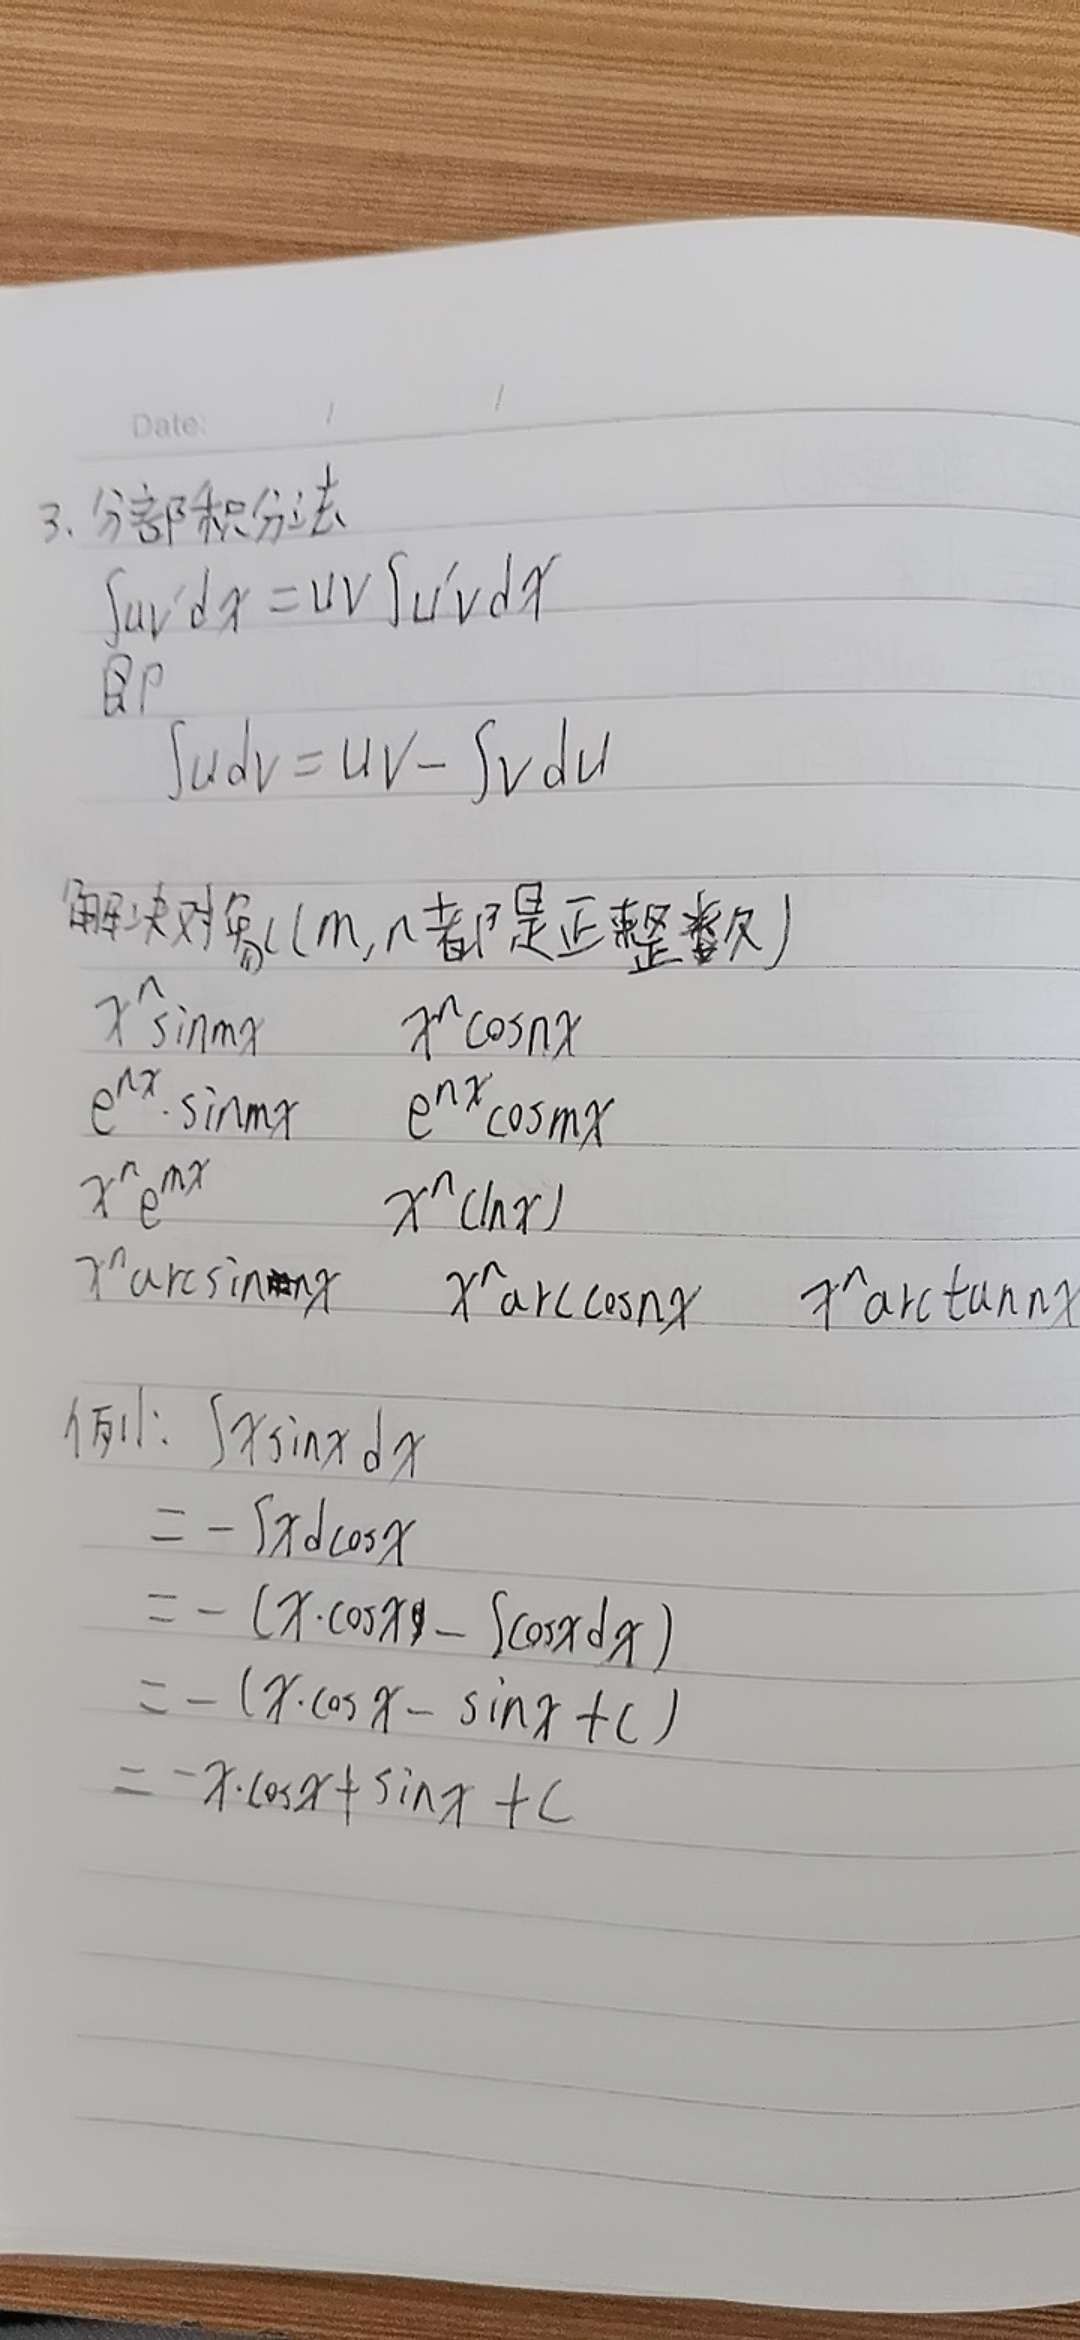 Date: / /
3. 分部积分法
∫uv'dx = uv ∫u'vdx
即
∫udv = uv - ∫vdu
解决对象((m,n都是正整数)
xⁿsinmx xⁿcosnx
eⁿˣ·sinmx eⁿˣcosmx
xⁿeᵐˣ xⁿ(lnx)
xⁿarcsinnx xⁿarccosnx xⁿarctannx
例1: ∫xsinxdx
= -∫xdcosx
= -(x·cosx - ∫cosxdx)
= -(x·cosx - sinx + C)
= -x·cosx + sinx + C